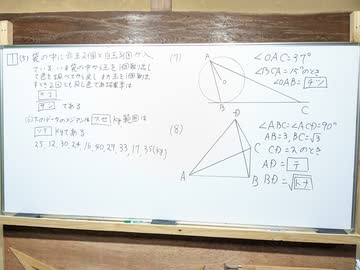 1 (5) 袋の中に赤玉2個と白玉3個が入
ている。いま袋の中から玉を1個取り出し
て色を調べてから戻し、また玉を1個取り出
すとき2回とも同じ色である確率は
サシ
である
(6) 下のデータのメジアンは スセ kg 範囲は
ソタ kgである
25, 12, 30, 24, 16, 40, 29, 33, 17, 35(kg)
(7)
A
O
B
C
∠OAC=37°
∠BCA=15°のとき
∠OAB=
(8)
D
A
B
C
∠ABC=∠ACD=90°
AB=3, BC=√3
CD=2のとき
AD= テ
BD=√トナ